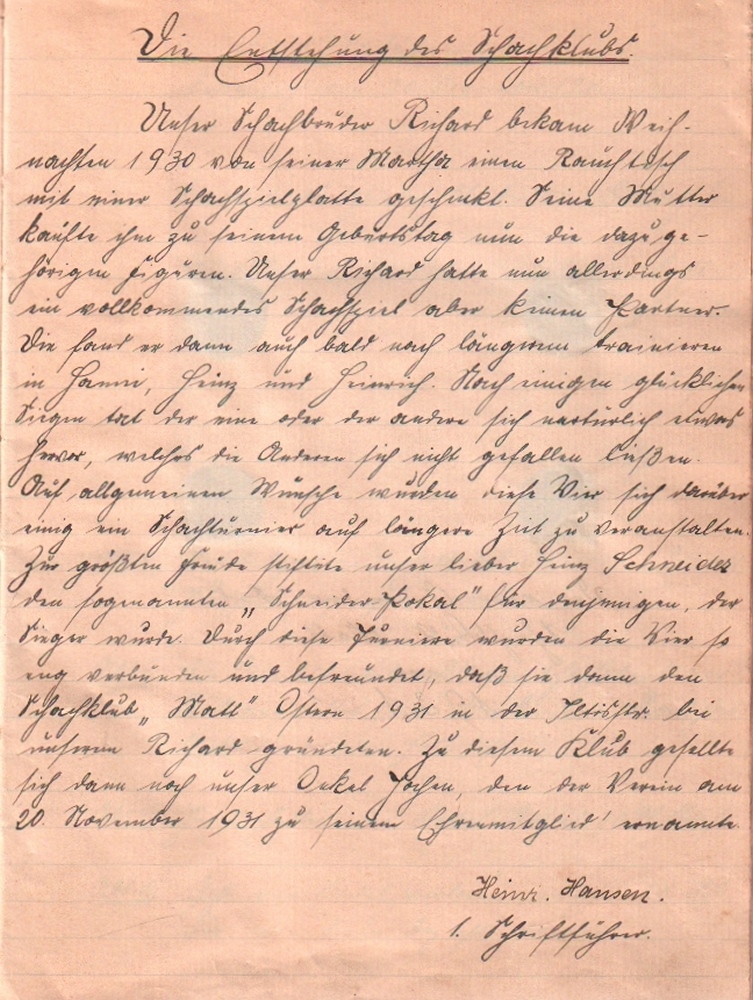 Die Entstehung des Schachklubs.
Unser Schachbruder Richard bekam Weih-
nachten 1930 von seiner Martha einen Rauchtisch
mit einer Schachspielplatte geschenkt. Seine Mutter
kaufte ihm zu seinem Geburtstag nun die dazuge-
hörigen Figuren. Unser Richard hatte nun allerdings
ein vollkommendes Schachspiel aber keinen Partner.
Die fand er dann auch bald nach längerem trainieren
in Hanni, Heinz und Heinrich. Nach einigen glücklichen
Siegen tat der eine oder der andere sich natürlich etwas
hervor, welches die Anderen sich nicht gefallen ließen.
Auf allgemeinen Wunsche wurden diese Vier sich darüber
einig ein Schachturnier auf längere Zeit zu veranstalten.
Zur größten Freude stiftete unser lieber Heinz Schneider
den sogenannten „Schneider-Pokal" für denjenigen, der
Sieger wurde. Durch diese Turniere wurden die Vier so
eng verbunden und befreundet, daß sie dann den
Schachklub „Matt" Ostern 1931 in der Iltisstr. bei
unserem Richard gründeten. Zu diesem Klub gesellte
sich dann noch unser Onkel Jochen, den der Verein am
20. November 1931 zu seinem Ehrenmitglied ernannte.
Heinr. Hansen.
1. Schriftführer.